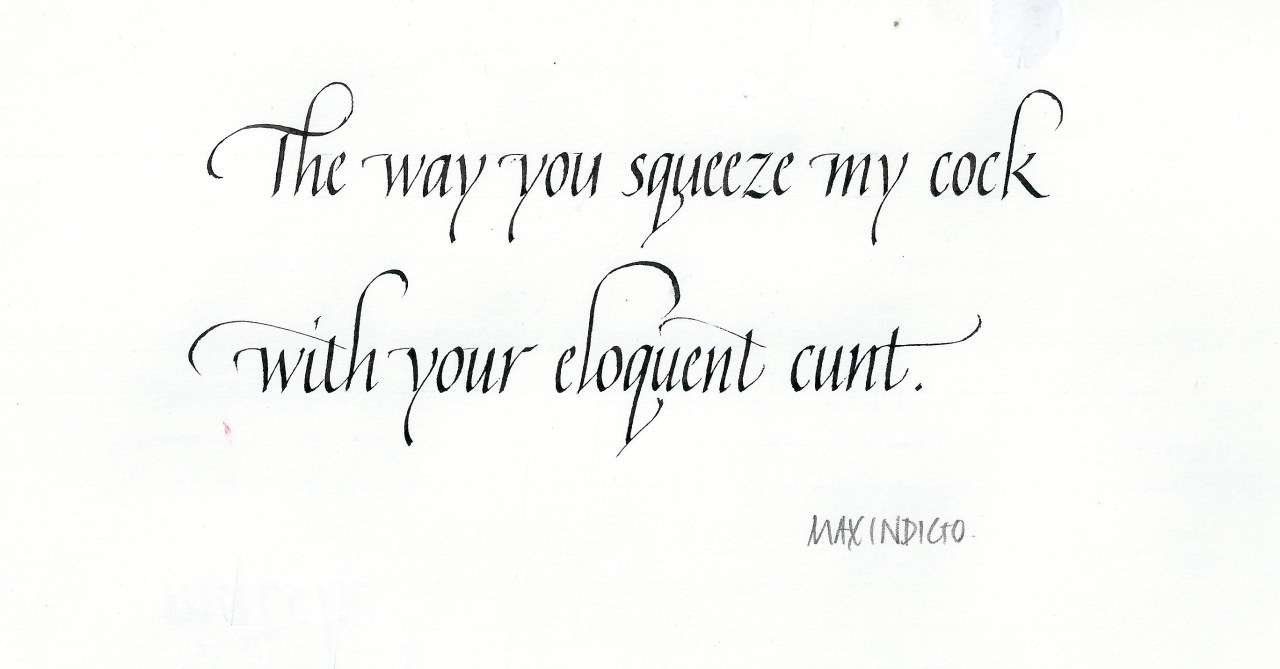 The way you squeeze my cock
with your eloquent cunt.
MAX INDIGO.